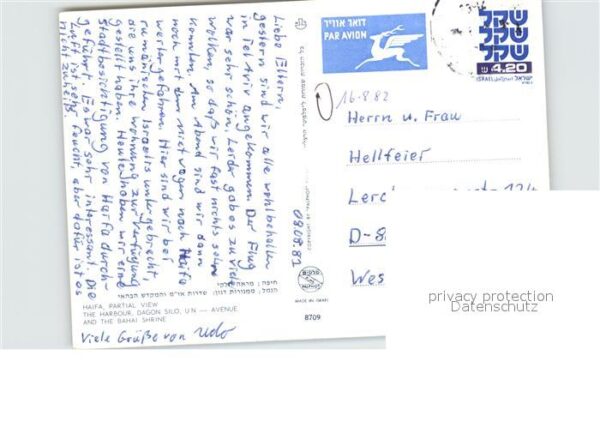 Liebe Eltern,
gestern sind wir alle wohlbehalten
in Tel Aviv angekommen. Der Flug
war sehr schön. Leider gab es zu viele
Wolken, so daß wir fast nichts sehen
konnten. Am Abend sind wir dann
noch mit dem Mietwagen nach Haifa
weiter gefahren. Hier sind wir bei
rumänischen Israelis untergebracht,
die uns ihre Wohnung zur Verfügung
gestellt haben. Heute haben wir eine
Stadtbesichtigung von Haifa durch-
geführt. Es war sehr interessant. Die
Luft ist sehr feucht, aber dafür ist es
nicht zu heiß.
Viele Grüße von Udo
08.08.82
חיפה: מראה חלקי
הנמל, ממגורות דגון, שדרות או״ם והמקדש הבהאי
HAIFA, PARTIAL VIEW
THE HARBOUR, DAGON SILO, U.N — AVENUE
AND THE BAHAI SHRINE
MADE IN ISRAEL
8709
דואר אויר
PAR AVION
שקל
שקל
שקל
4.20
ISRAEL ישראל
16.8.82
Herrn u. Frau
Hellfeier
Lerc
D-8
Wes
privacy protection
Datenschutz